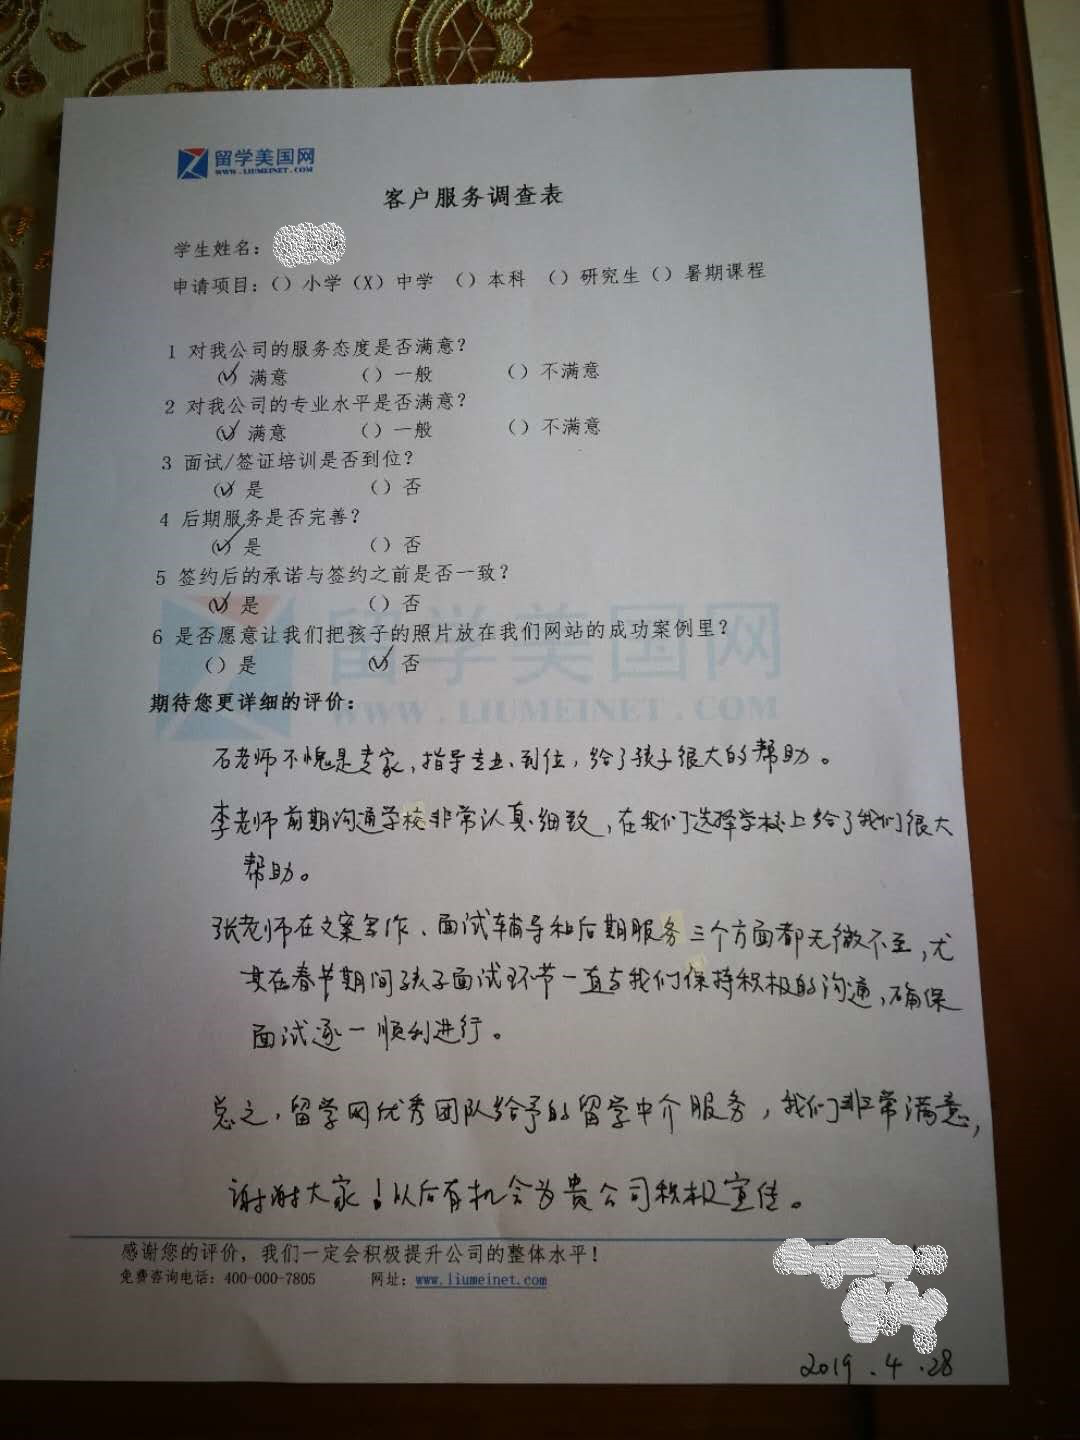 留学美国网
WWW.LIUMEINET.COM
客户服务调查表
学生姓名：
申请项目：（）小学（X）中学 （）本科 （）研究生（）暑期课程
1 对我公司的服务态度是否满意？
（✓）满意 （）一般 （）不满意
2 对我公司的专业水平是否满意？
（✓）满意 （）一般 （）不满意
3 面试/签证培训是否到位？
（✓）是 （）否
4 后期服务是否完善？
（✓）是 （）否
5 签约后的承诺与签约之前是否一致？
（✓）是 （）否
留学美国网
6 是否愿意让我们把孩子的照片放在我们网站的成功案例里？
（）是 （✓）否
WWW.LIUMEINET.COM
期待您更详细的评价：
石老师不愧是专家，指导专业、到位，给了孩子很大的帮助。
李老师前期沟通学校非常认真细致，在我们选择学校上给了我们很大
帮助。
张老师在文案写作、面试辅导和后期服务三个方面都无微不至，尤
其在春节期间孩子面试环节一直与我们保持积极的沟通，确保
面试逐一顺利进行。
总之，留学网优秀团队给予的留学中介服务，我们非常满意，
谢谢大家！以后有机会为贵公司积极宣传。
感谢您的评价，我们一定会积极提升公司的整体水平！
免费咨询电话：400-000-7805 网址：www.liumeinet.com
2019.4.28